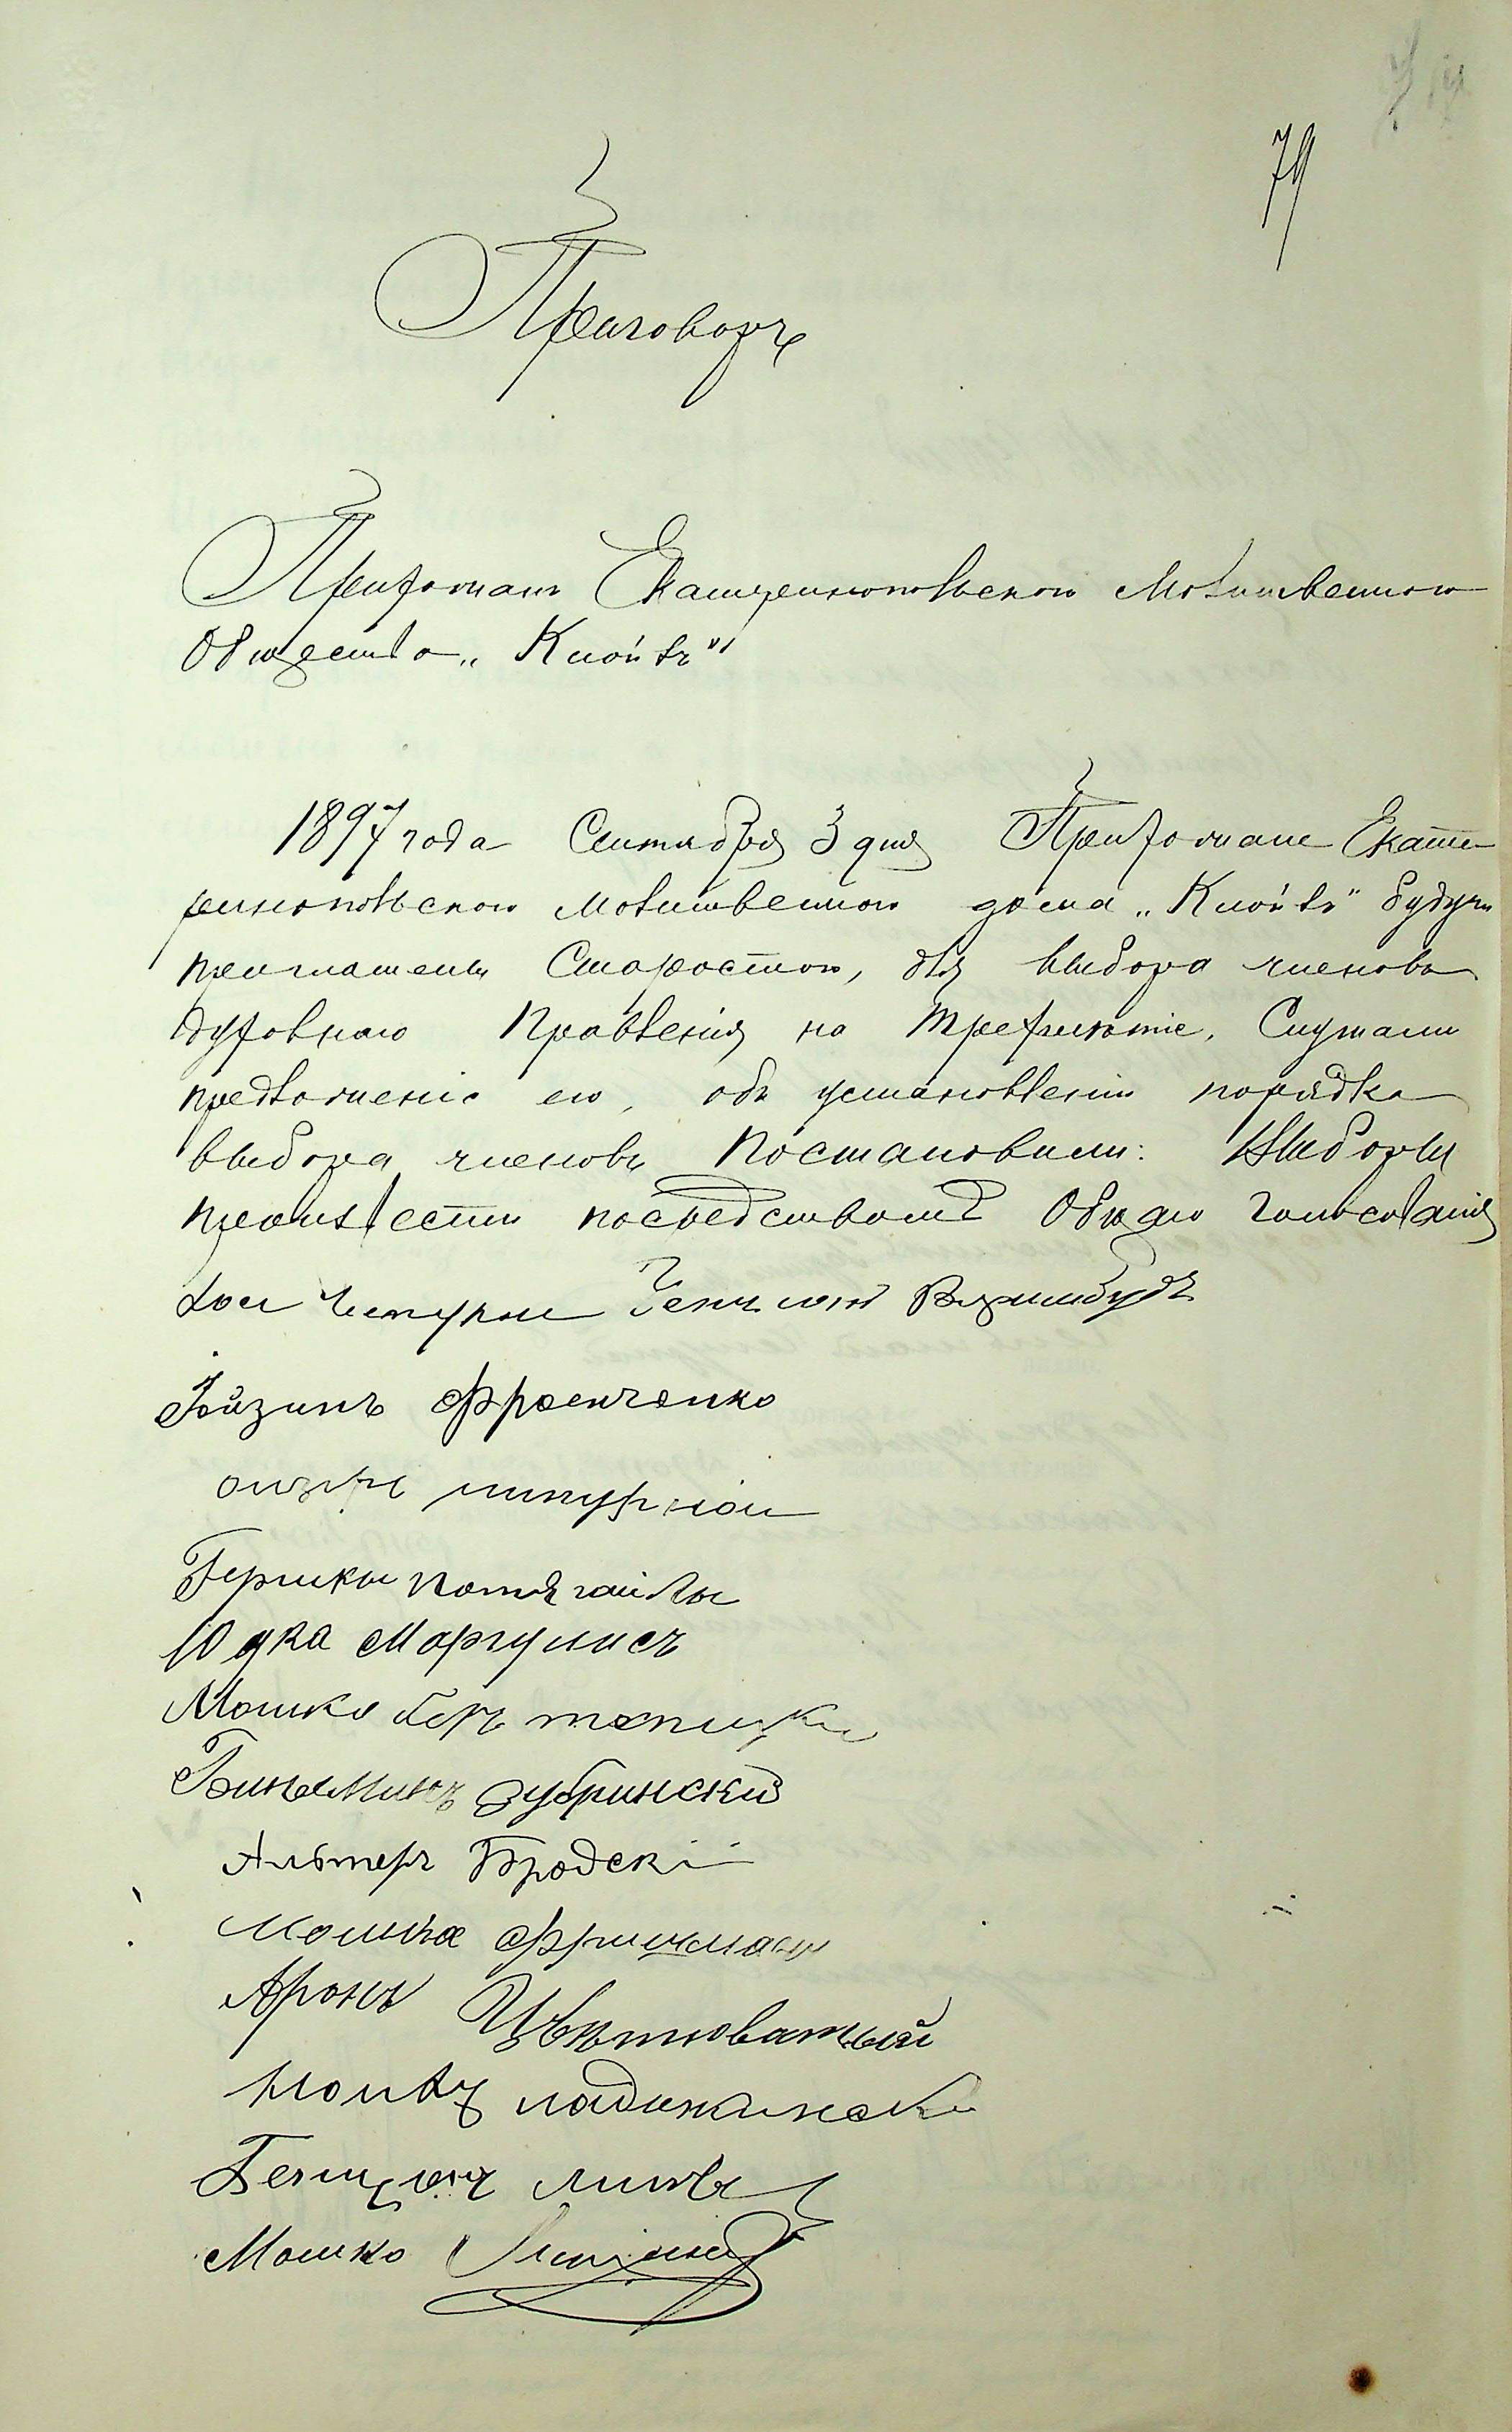 79
Приговоръ
Прихожанъ Екатеринопольскаго Молитвеннаго
Общества „Клойзъ"
1897 года Сентября 3 дня Прихожане Екате
ринопольскаго молитвеннаго дома „Клойзъ" будучи
приглашены Старостою, для выбора членовъ
духовнаго Правленія на трехлѣтіе, Слушали
предложеніе его, объ установленіи порядка
выбора членовъ Постановили: Выборы
произвести посредствомъ Общаго голосованія
Фроенченко
Юдка Маргулисъ
Мошко Беръ
Биньяминъ Дубринскій
Альтеръ Бродскій
Мошка Фришманъ
Аронъ Цвѣтноватый
ладижински
Мошко